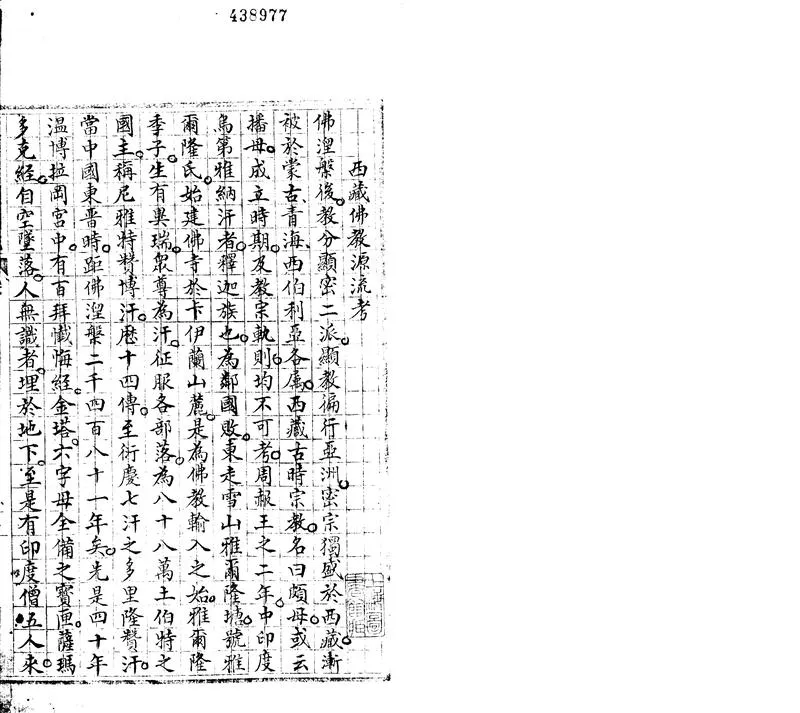 438977
西藏佛教源流考
佛涅槃後。教分顯密二派。顯教徧行亞洲。密宗獨盛於西藏。漸
被於蒙古、青海、西伯利亞各屬。西藏古時宗教。名曰頗母。或云
播母。成立時期。及教宗軌則。均不可考。周赧王之二年。中印度
烏第雅納汗者。釋迦族也。為鄰國敗。東走雪山雅爾隆塘。號雅
爾隆氏。始建佛寺於卡伊蘭山麓。是為佛教輸入之始。雅爾隆
季子。生有異瑞。眾尊為汗。征服各部落。為八十八萬土伯特之
國主。稱尼雅特贊博汗。歷十四傳。至衍慶七汗之多里隆贊汗。
當中國東晋時。距佛涅槃二千四百八十一年矣。先是四十年
溫博拉岡宮中。有百拜懺悔經。金塔。六字母全備之寶匣。薩瑪
多克經。自空墜落。人無識者。埋於地下。至是有印度僧五人來。